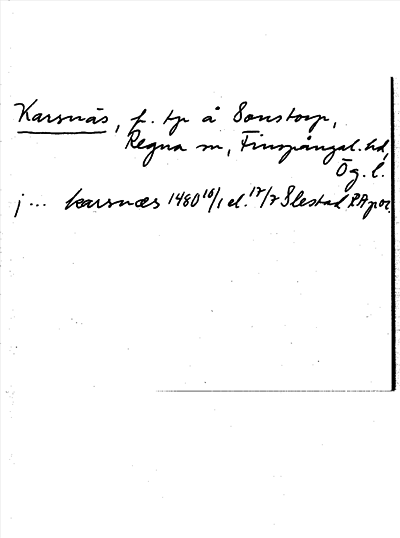 Karsnäs, f. tp å Sonstorp,
Regna sn, Finspångal. hd,
Ög. l.
j ... karsnæs 1480 16/1 el. 17/7 Slestad RAp or.